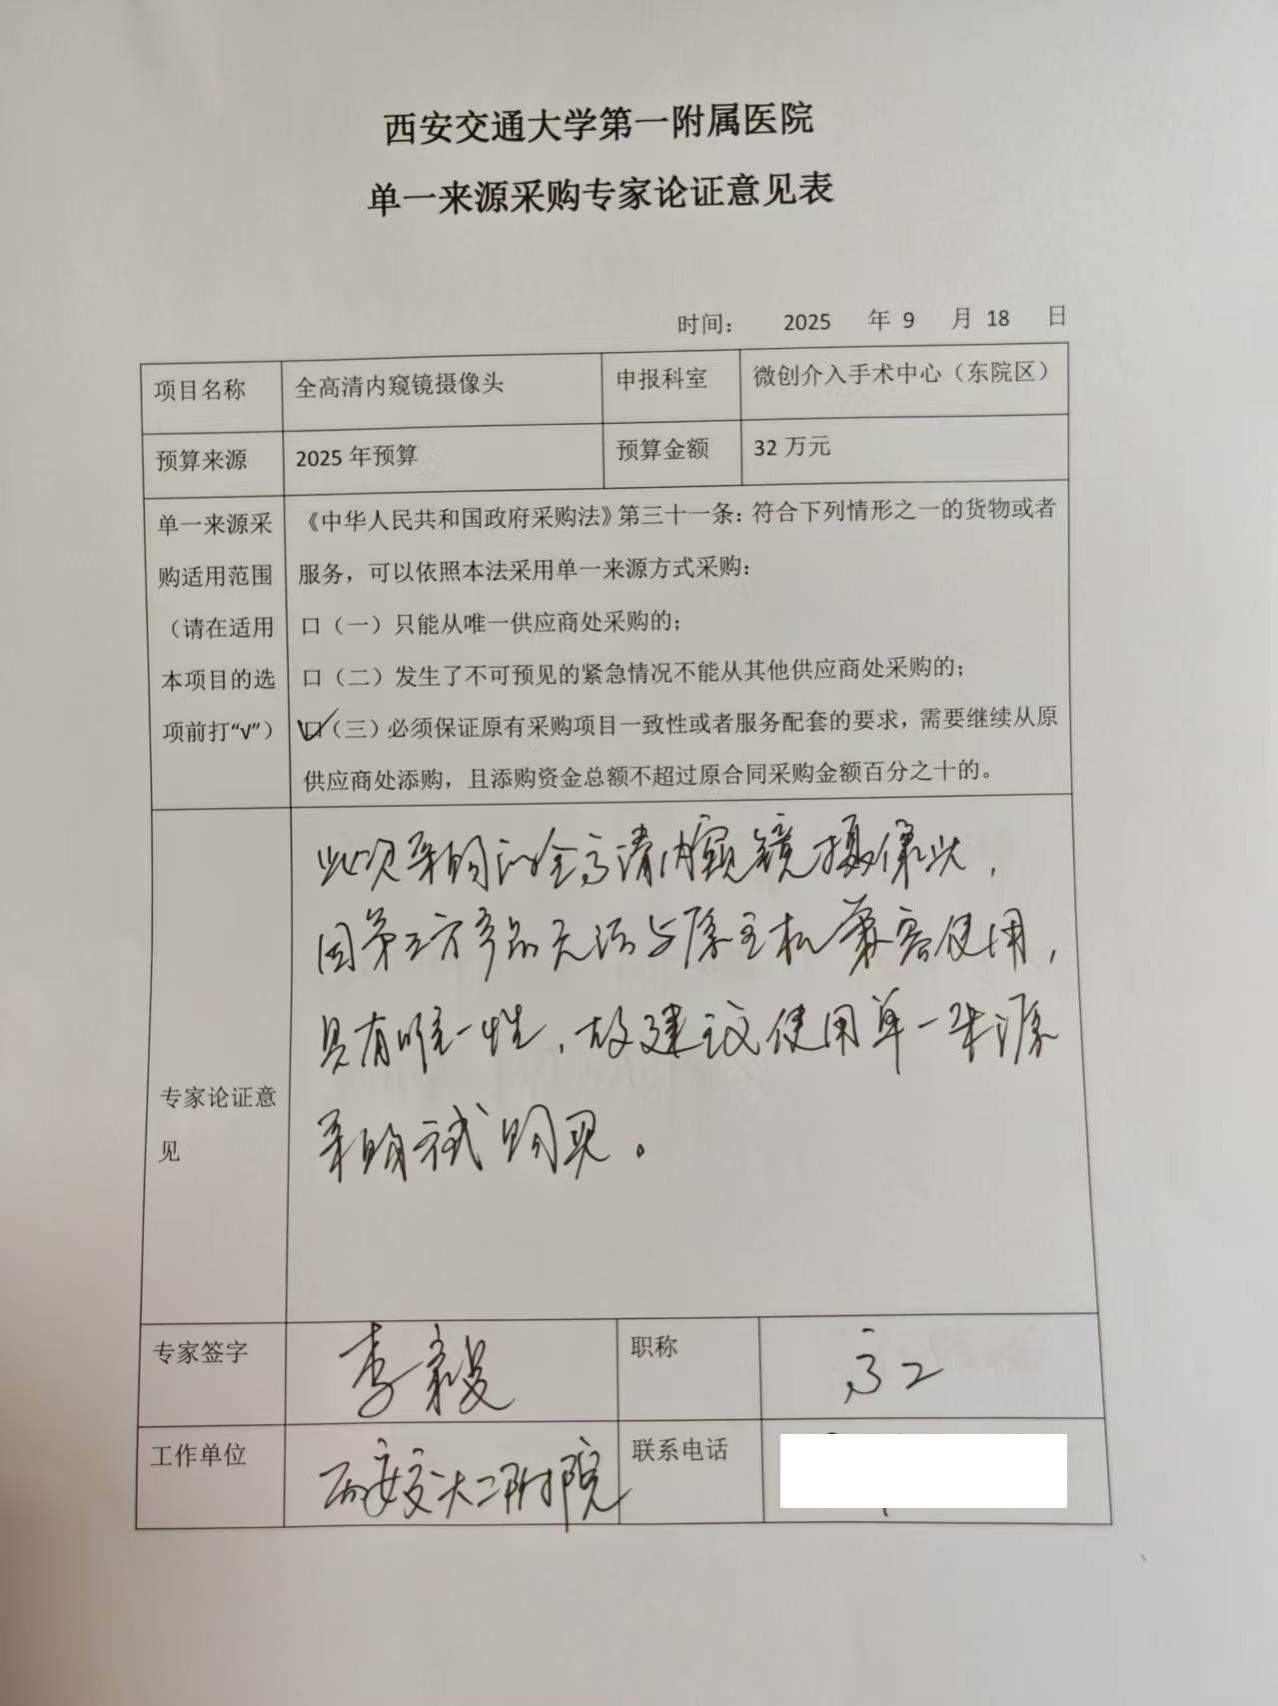 西安交通大学第一附属医院
单一来源采购专家论证意见表
时间： 2025 年 9 月 18 日
项目名称 全高清内窥镜摄像头 申报科室 微创介入手术中心（东院区）
预算来源 2025 年预算 预算金额 32 万元
单一来源采购适用范围（请在适用本项目的选项前打“√”）
《中华人民共和国政府采购法》第三十一条：符合下列情形之一的货物或者
服务，可以依照本法采用单一来源方式采购：
口（一）只能从唯一供应商处采购的；
口（二）发生了不可预见的紧急情况不能从其他供应商处采购的；
☑（三）必须保证原有采购项目一致性或者服务配套的要求，需要继续从原
供应商处添购，且添购资金总额不超过原合同采购金额百分之十的。
专家论证意见
此次采购的全高清内窥镜摄像头，
因第三方产品无法与原主机兼容使用，
具有唯一性，故建议使用单一来源
采购方式购买。
专家签字 李毅 职称 高工
工作单位 西安交大二附院 联系电话